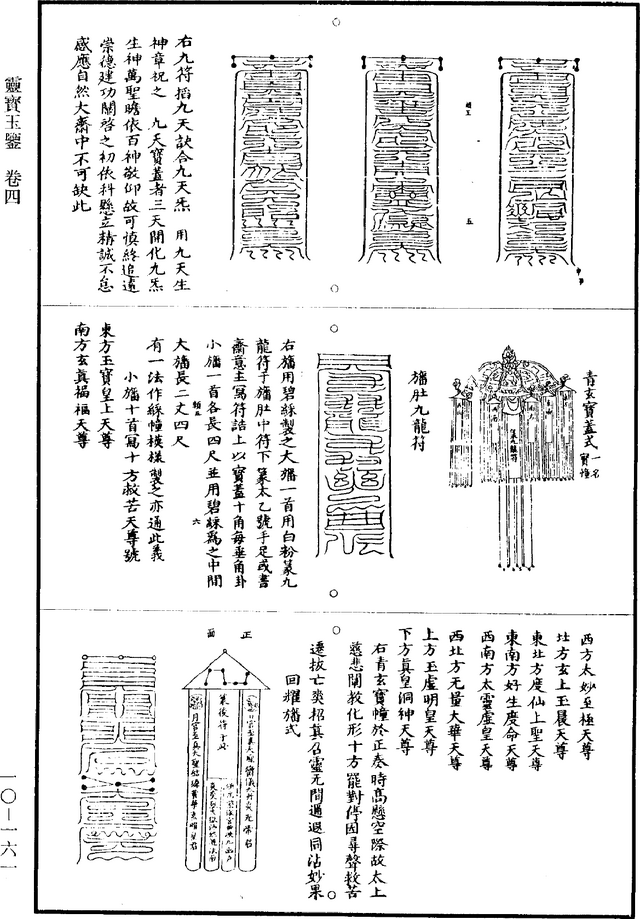 靈寶玉鑒 卷四
右九符掐九天訣合九天炁 用九天生
神章祝之 九天寶蓋者三天開化九炁
生神萬聖瞻依百神敬仰故可慎終追遠
崇德建功關啓之初依科懸立精誠不怠
感應自然大齋中不可缺此
青玄寶蓋式 一名寶幢
旛肚九龍符
右旛用碧綵製之大旛一首用白粉篆九
龍符于旛肚中符下篆太乙號手足或書
齋意主寫符誥上以寶蓋十角每垂角卦
小旛一首各長四尺並用碧綵爲之中間
大旛長二丈四尺
有一法作綵幢模樣製之亦通此義
小旛十首寫十方救苦天尊號
東方玉寶皇上天尊
南方玄真福福天尊
西方太妙至極天尊
北方玄上玉晨天尊
東北方度仙上聖天尊
東南方好生度命天尊
西南方太靈虛皇天尊
西北方无量大華天尊
上方玉虛明皇天尊
下方真皇洞神天尊
右青玄寶幢於正奏時高懸空際故太上
慈悲闡教化形十方罷對停因尋聲救苦
遷拔亡爽招真召靈无間遐邇同沾妙果
回耀旛式
正面
一〇—一六一